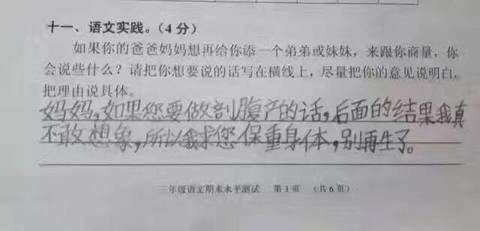 十一、语文实践。(4分)
如果你的爸爸妈妈想再给你添一个弟弟或妹妹，来跟你商量，你
会说些什么？请把你想要说的话写在横线上，尽量把你的意见说明白，
把理由说具体。
妈妈，如果您要做剖腹产的话，后面的结果我真
不敢想象，所以我求您保重身体，别再生了。
三年级语文期末水平测试 第1页 (共6页)